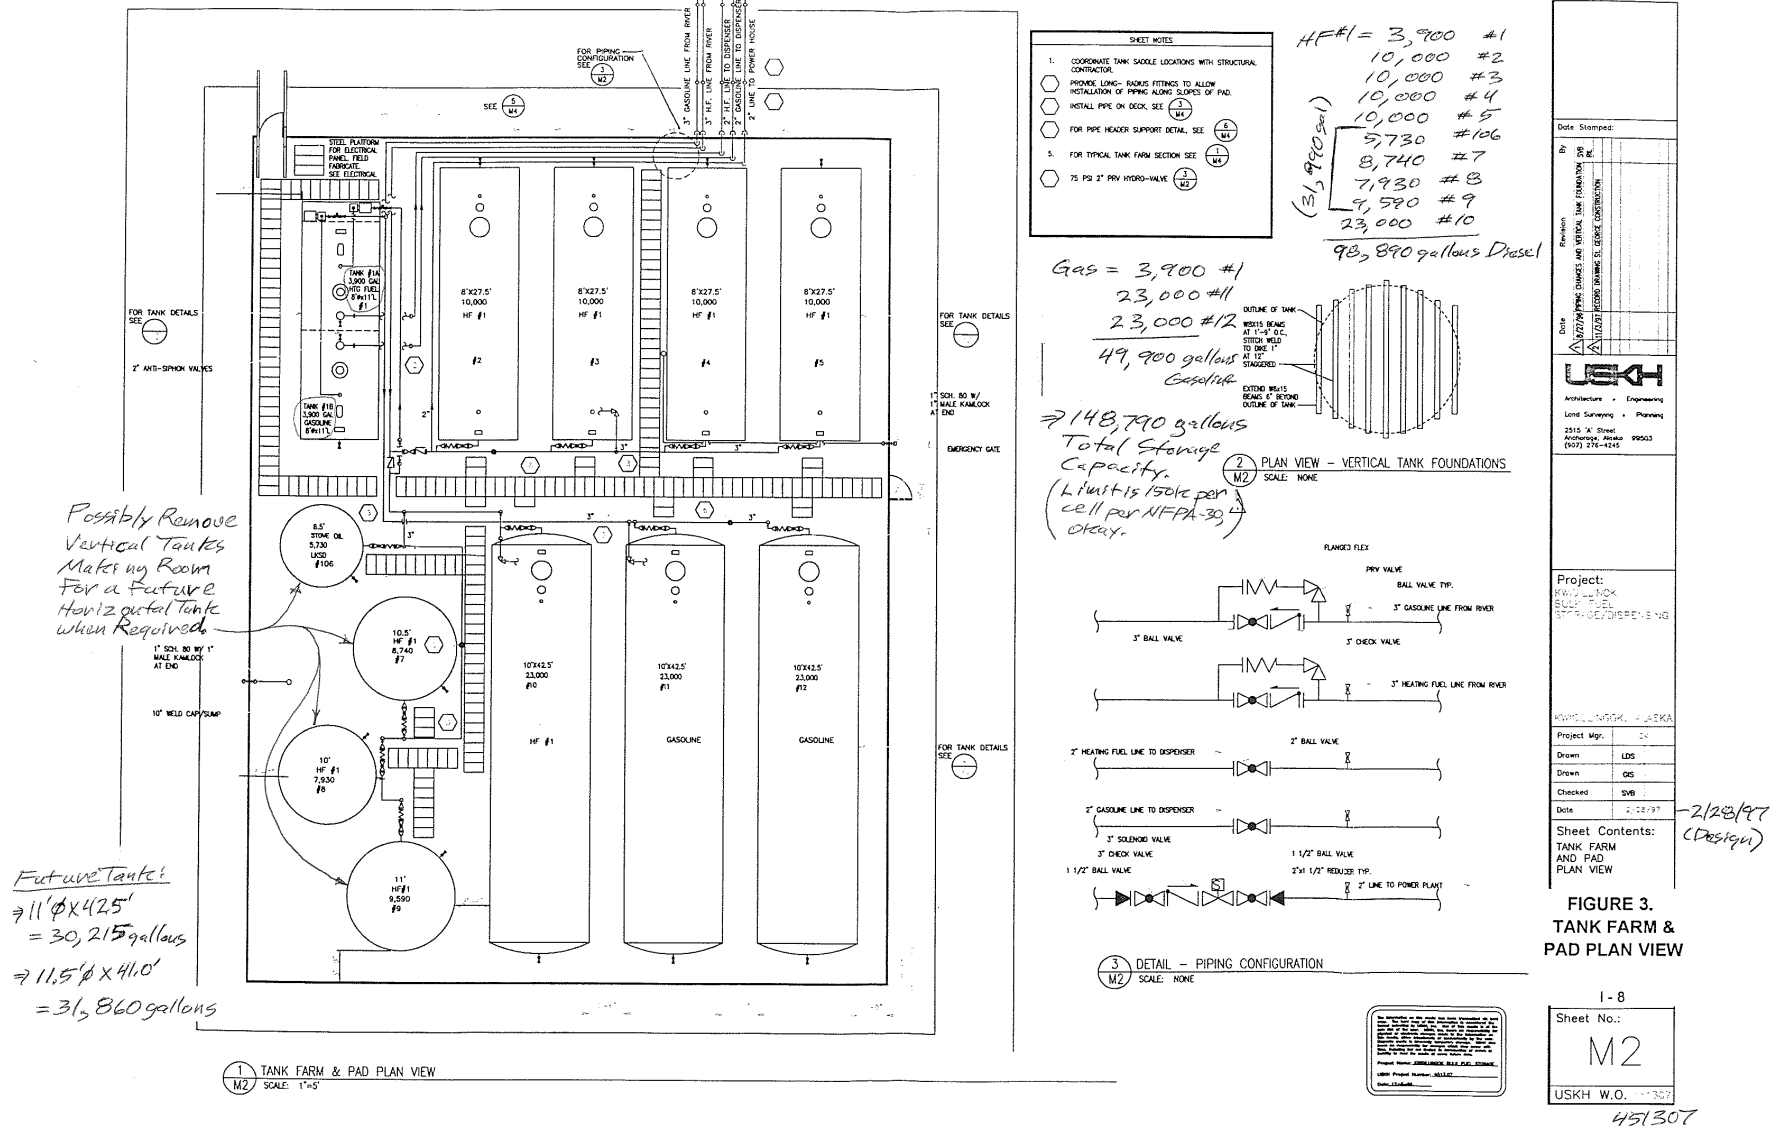 3" GASOLINE LINE FROM RIVER
3" H.F. LINE FROM RIVER
2" H.F. LINE TO DISPENSER
2" GASOLINE LINE TO DISPENSER
2" LINE TO POWER HOUSE
FOR PIPING
CONFIGURATION
SEE 3
M2
SEE 5
M4
STEEL PLATFORM
FOR ELECTRICAL
PANEL. FIELD
FABRICATE.
SEE ELECTRICAL
TANK #1A
3,900 GAL
HTG FUEL
8'øx11'L
#1
TANK #1B
3,900 GAL
GASOLINE
8'øx11'L
8'X27.5'
10,000
HF #1
#2
8'X27.5'
10,000
HF #1
#3
8'X27.5'
10,000
HF #1
#4
8'X27.5'
10,000
HF #1
#5
FOR TANK DETAILS
SEE
2" ANTI-SIPHON VALVES
FOR TANK DETAILS
SEE
1" SCH. 80 W/
1" MALE KAMLOCK
AT END
EMERGENCY GATE
2"
3"
3"
3"
3"
3"
3"
Possibly Remove
Vertical Tanks
Making Room
For a Future
Horizontal Tank
when Required.
1" SCH. 80 W/ 1"
MALE KAMLOCK
AT END
10" WELD CAP/SUMP
8.5'
STOVE OIL
5,730
LKSD
#106
10.5'
HF #1
8,740
#7
10'
HF #1
7,930
#8
11'
HF#1
9,590
#9
10'X42.5'
23,000
#10
HF #1
10'X42.5'
23,000
#11
GASOLINE
10'X42.5'
23,000
#12
GASOLINE
FOR TANK DETAILS
SEE
Future Tank:
⇒ 11'ø X 42.5'
= 30,215 gallons
⇒ 11.5'ø X 41.0'
= 31,860 gallons
1
M2
TANK FARM & PAD PLAN VIEW
SCALE: 1"=5'
SHEET NOTES
1. COORDINATE TANK SADDLE LOCATIONS WITH STRUCTURAL
CONTRACTOR.
PROVIDE LONG- RADIUS FITTINGS TO ALLOW
INSTALLATION OF PIPING ALONG SLOPES OF PAD.
INSTALL PIPE ON DECK, SEE 3
M4
FOR PIPE HEADER SUPPORT DETAIL, SEE 6
M4
5. FOR TYPICAL TANK FARM SECTION SEE 1
M4
75 PSI 2" PRV HYDRO-VALVE 3
M2
HF#1 = 3,900 #1
10,000 #2
10,000 #3
10,000 #4
10,000 #5
5,730 #106
8,740 #7
7,930 #8
9,590 #9
23,000 #10
(31,990 gal)
98,890 gallons Diesel
Gas = 3,900 #1
23,000 #11
23,000 #12
49,900 gallons
Gasoline
⇒ 148,790 gallons
Total Storage
Capacity.
(Limit is 150k per
cell per NFPA-30,
okay.)
OUTLINE OF TANK
W8X15 BEAMS
AT 1'-9" O.C.,
STITCH WELD
TO DIKE 1"
AT 12"
STAGGERED
EXTEND W8x15
BEAMS 6" BEYOND
OUTLINE OF TANK
2
M2
PLAN VIEW - VERTICAL TANK FOUNDATIONS
SCALE: NONE
FLANGED FLEX
PRV VALVE
BALL VALVE TYP.
3" GASOLINE LINE FROM RIVER
3" BALL VALVE
3" CHECK VALVE
3" HEATING FUEL LINE FROM RIVER
2" BALL VALVE
2" HEATING FUEL LINE TO DISPENSER
2" GASOLINE LINE TO DISPENSER
3" SOLENOID VALVE
3" CHECK VALVE
1 1/2" BALL VALVE
1 1/2" BALL VALVE
2"x1 1/2" REDUCER TYP.
2" LINE TO POWER PLANT
S
3
M2
DETAIL - PIPING CONFIGURATION
SCALE: NONE
Date Stamped:
By
SVB
Revision
Date
1 8/27/98 PIPING CHANGES AND VERTICAL TANK FOUNDATION
2 11/3/97 RECORD DRAWING ST. GEORGE CONSTRUCTION
USKH
Architecture • Engineering
Land Surveying • Planning
2515 "A" Street
Anchorage, Alaska 99503
(907) 276-4245
Project:
KWIGILLINGOK
BULK FUEL
STORAGE/DISPENSING
KWIGILLINGOK, ALASKA
Project Mgr.
Drawn LDS
Drawn GIS
Checked SVB
Date 2/28/97
2/28/97
(Design)
Sheet Contents:
TANK FARM
AND PAD
PLAN VIEW
FIGURE 3.
TANK FARM &
PAD PLAN VIEW
I-8
Sheet No.:
M2
USKH W.O.
451307